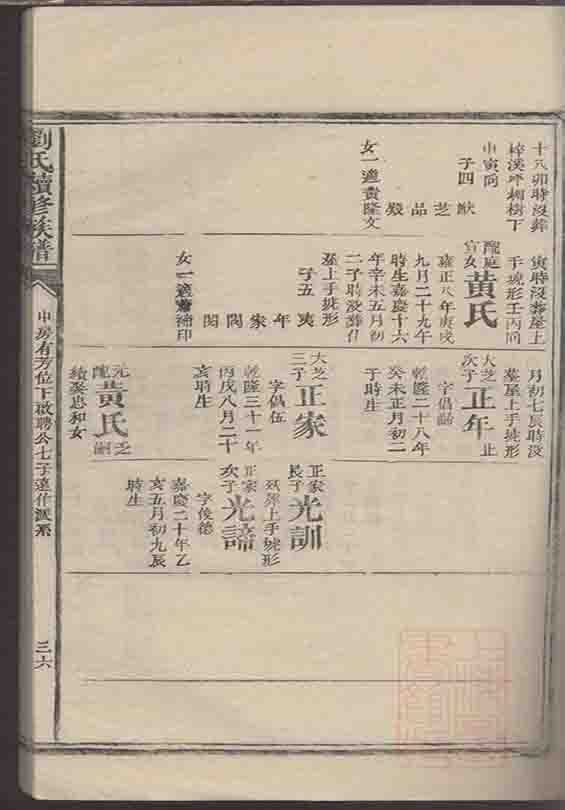 十八卯時沒葬
梓溪坪楓樹下
申寅向
子四
猷
芝
品
發
女一適黃隆文
寅時沒葬屋上
手塊形壬丙向
醮庭
宣女
黃氏
雍正八年庚戌
九月二十九午
時生嘉慶十六
年辛未五月初
二子時沒葬
屋上手塊形
子五
寅
年
家
閣
閔
女一適蕭
印
月初七辰時沒
葬屋上手塊形
大芝
次子
正年
止
字倡
乾隆二十八年
癸未正月初二
子時生
大芝
三子
正家
字倡伍
乾隆三十一年
丙戌八月二十
亥時生
元
醮
黃氏
乏
嗣
續娶忠和女
正家
長子
光訓
歿葬上手塊形
正家
次子
光諦
字俊德
嘉慶二十年乙
亥五月初九辰
時生
劉氏續修族譜
中房有芳位下啟聘公七子遠作派系
三六